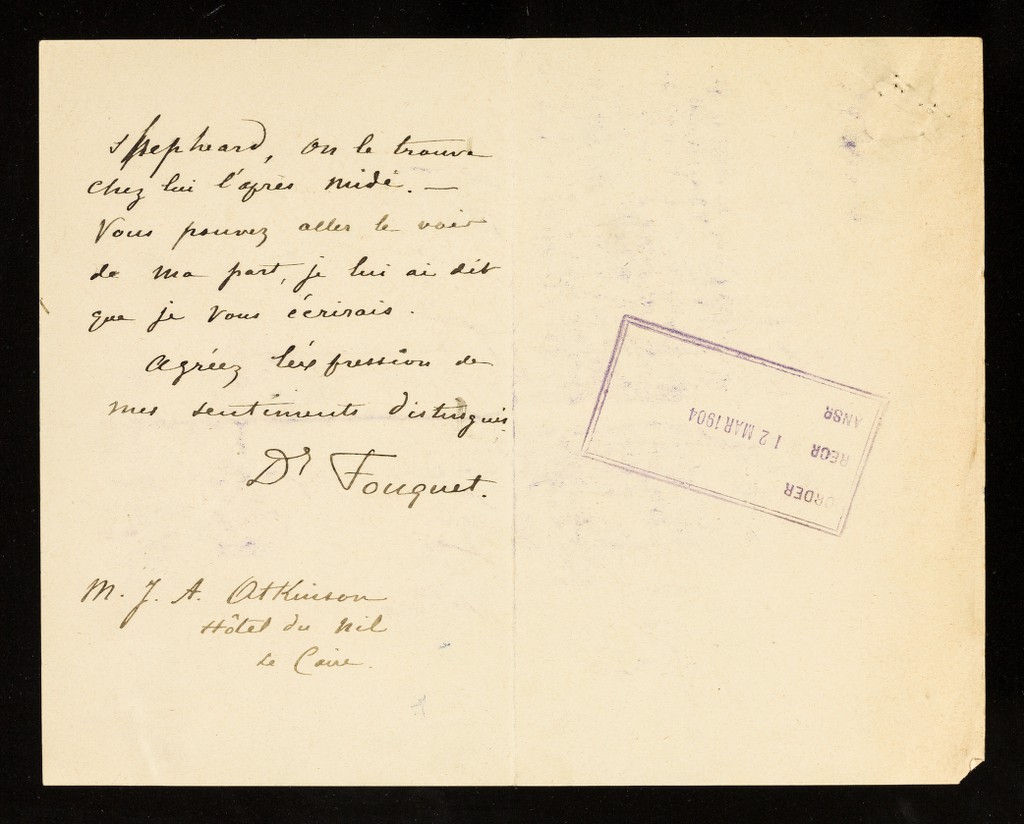 Shepheard, on le trouve
chez lui l'après midi. —
Vous pouvez aller le voir
de ma part, je lui ai dit
que je vous écrirais.
Agréez l'expression de
mes sentiments distingués
Dr Fouquet.
M. J. A. Atkinson
Hôtel du Nil
Le Caire.
ORDER
RECR 12 MAR 1904
ANSR